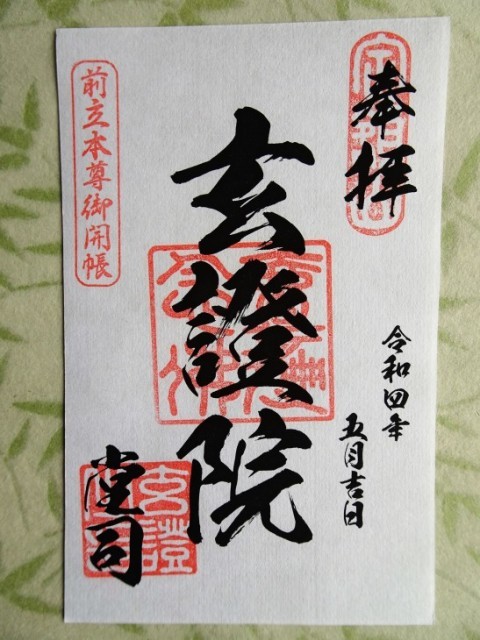 奉拝
令和四年
五月吉日
玄證院
前立本尊御開帳
堂司
玄證